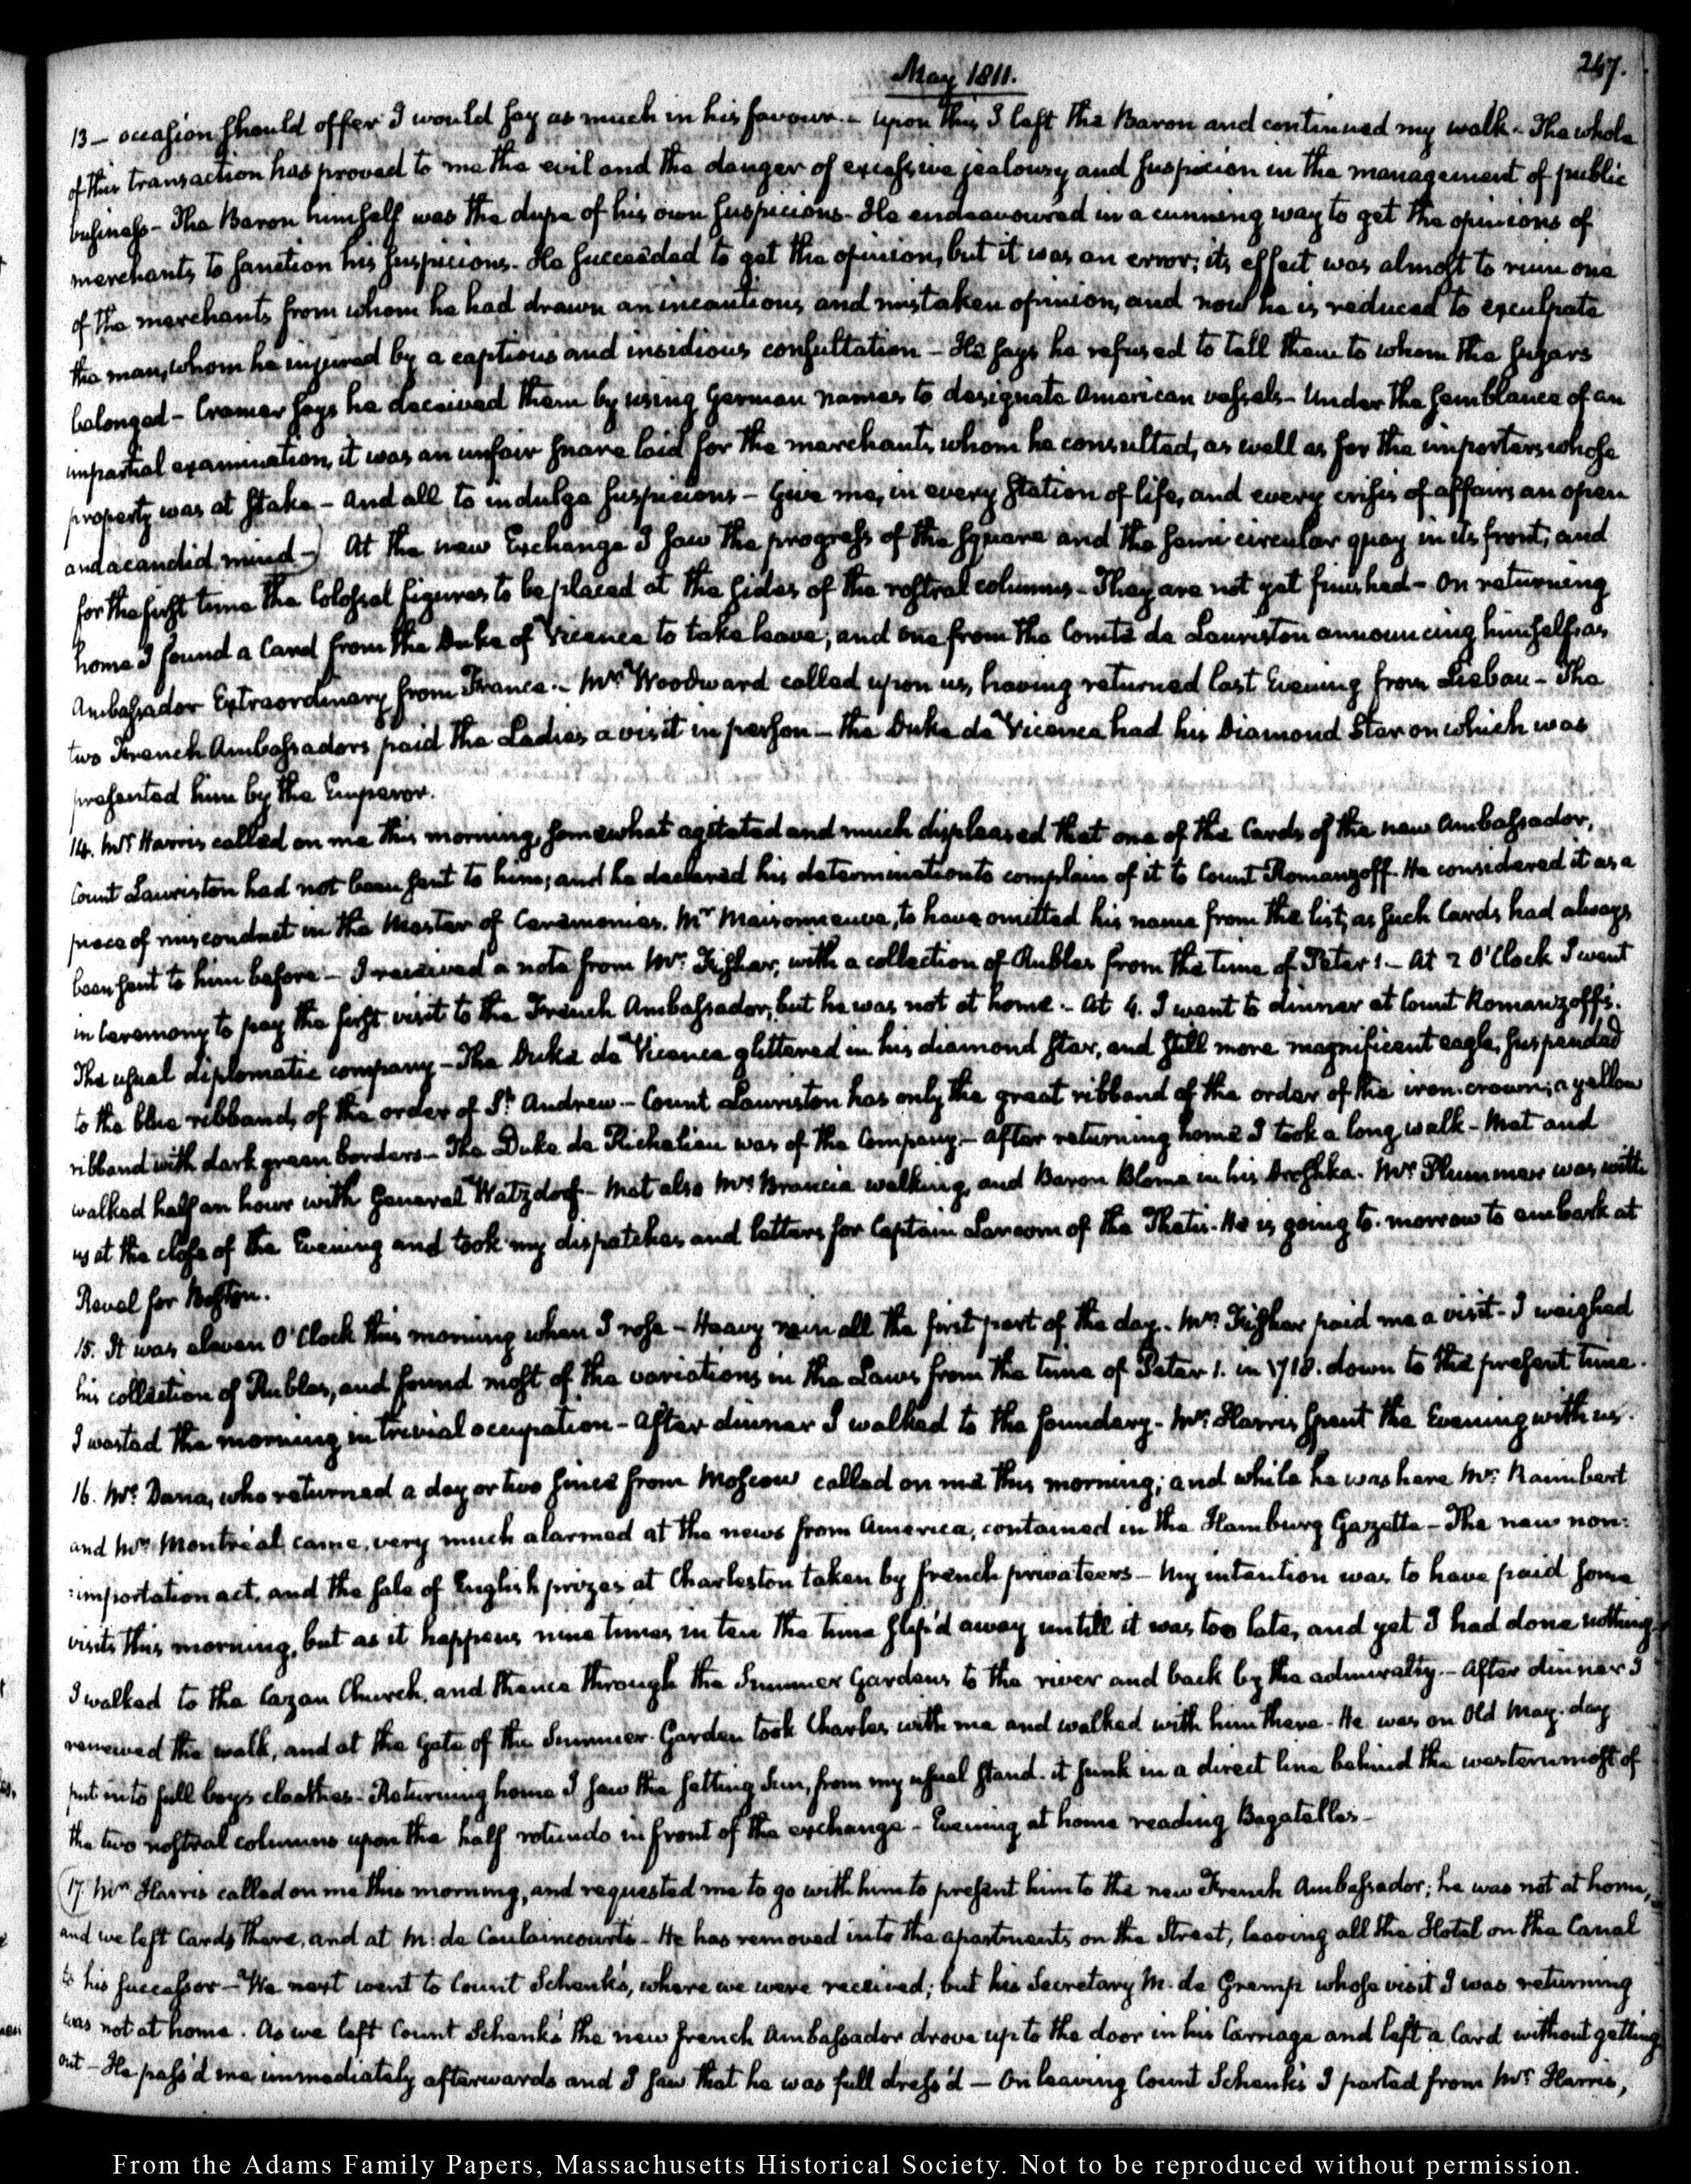 247.
May 1811.
13 — occasion should offer I would say as much in his favour. — Upon this I left the Baron and continued my walk — The whole
of this transaction has proved to me the evil and the danger of excessive jealousy and suspicion in the management of public
business — The Baron himself was the dupe of his own suspicions — He endeavoured in a cunning way to get the opinions of
merchants to sanction his suspicions — He succeeded to get the opinion, but it was an error; its effect was almost to ruin one
of the merchants from whom he had drawn an incautious and mistaken opinion, and now he is reduced to exculpate
the man, whom he injured by a captious and insidious consultation — He says he refused to tell them to whom the sugars
belonged — Cramer says he deceived them by using German names to designate American vessels — Under the semblance of an
impartial examination, it was an unfair snare laid for the merchants whom he consulted, as well as for the importers whose
property was at stake — And all to indulge suspicions — Give me, in every station of life, and every crisis of affairs an open
and a candid mind —) At the new Exchange I saw the progress of the square and the semi circular quay in its front; and
for the first time the Colossal figures to be placed at the sides of the rostral columns — They are not yet finished — On returning
home I found a Card from the Duke of Vicence to take leave; and one from the Comte de Lauriston announcing himself as
Ambassador Extraordinary from France. — Mr. Woodward called upon us, having returned last Evening from Liebau — The
two French Ambassadors paid the Ladies a visit in person — the Duke de Vicence had his Diamond Star on which was
presented him by the Emperor.
14. Mr. Harris called on me this morning, somewhat agitated and much displeased that one of the Cards of the new Ambassador,
Count Lauriston had not been sent to him; and he declared his determination to complain of it to Count Romanzoff. He considered it as a
piece of misconduct in the Master of Ceremonies. Mr. Maisonneuve, to have omitted his name from the list, as such Cards had always
been sent to him before — I received a note from Mr. Fisher, with a collection of Rubles from the time of Peter 1. — At 2 O'Clock I went
in Ceremony to pay the first visit to the French Ambassador; but he was not at home — At 4. I went to dinner at Count Romanzoff's.
The usual diplomatic company — The Duke de Vicence glittered in his diamond star, and still more magnificent eagle, suspended
to the blue ribband, of the order of St. Andrew — Count Lauriston has only the great ribband of the order of the iron-crown; a yellow
ribband with dark green borders — The Duke de Richelieu was of the Company — After returning home I took a long walk — Met and
walked half an hour with General Watzdorf — Met also Mr. Brancia walking, and Baron Blome in his Droshka. Mr. Plummer was with
us at the close of the Evening and took my dispatches and letters for Captain Larcom of the Thetis. He is going to-morrow to embark at
Reval for Boston.
15. It was eleven O'Clock this morning when I rose — Heavy rain all the first part of the day. Mr. Fisher paid me a visit — I weighed
his collection of Rubles, and found most of the variations in the Laws from the time of Peter 1. in 1718. down to the present time.
I wasted the morning in trivial occupation — After dinner I walked to the foundery — Mr. Harris spent the Evening with us.
16. Mr. Dana, who returned a day or two since from Moscow called on me this morning; and while he was here Mr. Raimbert
and Mr. Montréal came, very much alarmed at the news from America, contained in the Hamburg Gazette — The new non-
:importation act, and the sale of English prizes at Charleston taken by french privateers — My intention was to have paid some
visits this morning, but as it happens nine times in ten the time slip'd away untill it was too late, and yet I had done nothing.
I walked to the Cazan Church, and thence through the Summer Gardens to the river and back by the admiralty. — After dinner I
renewed the walk, and at the gate of the Summer-Garden took Charles with me and walked with him there. He was on Old May-day
put into full boys cloathes — Returning home I saw the setting Sun, from my usual stand. it sunk in a direct line behind the westernmost of
the two rostral columns upon the half rotundo in front of the exchange — Evening at home reading Bagatelles —
(17. Mr. Harris called on me this morning, and requested me to go with him to present him to the new French Ambassador; he was not at home,
and we left Cards there, and at M: de Caulaincourt's — He has removed into the apartments on the Street, leaving all the Hotel on the Canal
to his successor — We next went to Count Schenk's, where we were received; but his Secretary M. de Gremp whose visit I was returning
was not at home. As we left Count Schenk's the new french Ambassador drove up to the door in his Carriage and left a Card without getting
out — He pass'd me immediately afterwards and I saw that he was full dress'd — On leaving Count Schenk's I parted from Mr. Harris,
From the Adams Family Papers, Massachusetts Historical Society. Not to be reproduced without permission.